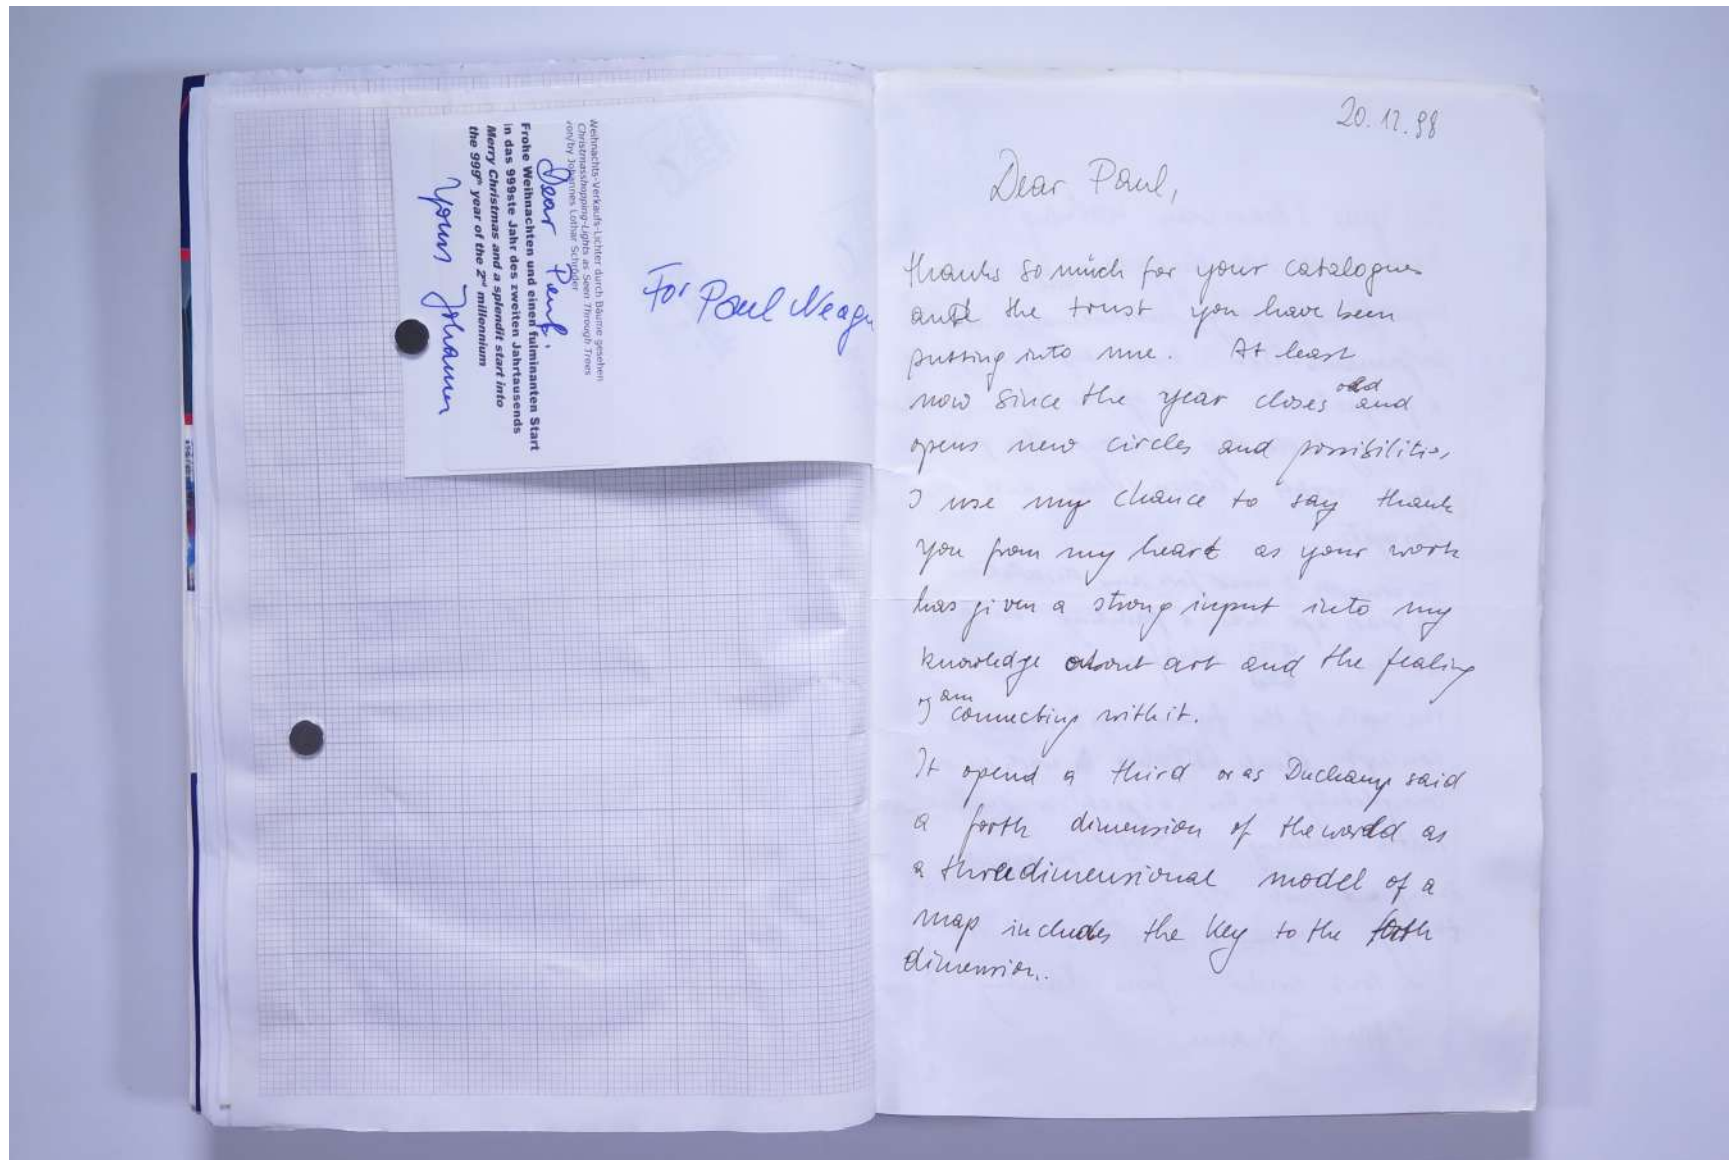 Weihnachts-Verkaufs-Lichter durch Bäume gesehen
Christmasshopping-Lights as Seen Through Trees
von/by Johannes Lothar Schröder
Dear Paul.
Frohe Weihnachten und einen fulminanten Start
in das 999ste Jahr des zweiten Jahrtausends
Merry Christmas and a splendit start into
the 999th year of the 2nd millennium
Yours Johannes
For Paul Neagu
20.12.98
Dear Paul,
thanks so much for your catalogues
and the trust you have been
putting into me. At least
now since the year closes old and
opens new circles and possibilities
I use my chance to say thank
you from my heart as your work
has given a strong input into my
knowledge about art and the fealing
I am connecting with it.
It opend a third or as Duchamp said
a forth dimension of the world as
a threedimensional model of a
map includes the key to the forth
dimension.